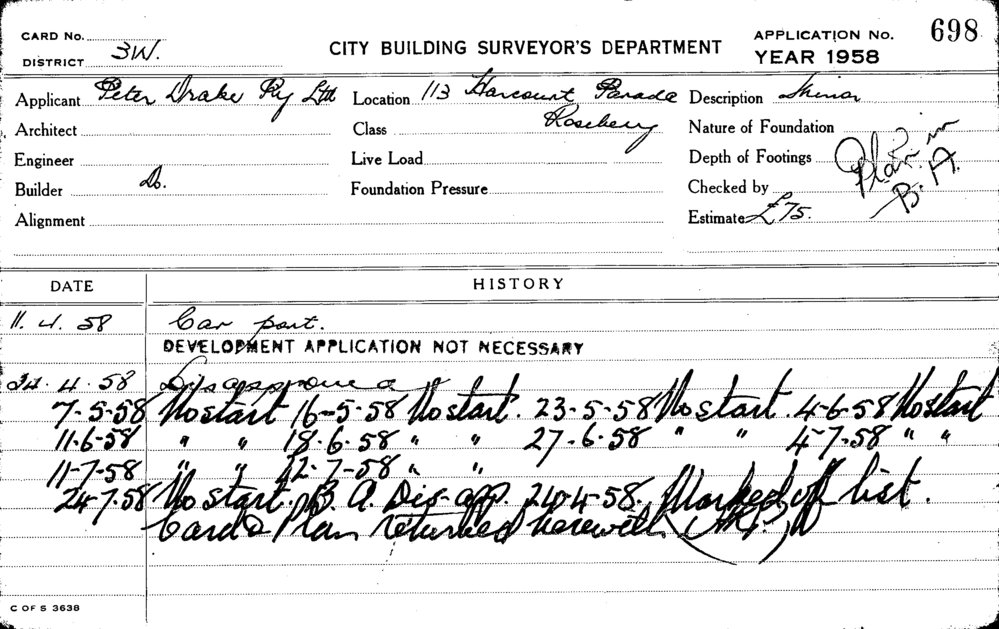 CARD No.
DISTRICT 3W.
CITY BUILDING SURVEYOR'S DEPARTMENT
APPLICATION No. 698
YEAR 1958
Applicant Peter Drake Pty Ltd
Location 113 Harcourt Parade
Rosebery
Description Minor
Architect
Class
Nature of Foundation
Engineer
Live Load
Depth of Footings
Plan in
B. A.
Builder Do.
Foundation Pressure
Checked by
Alignment
Estimate £75.
DATE HISTORY
11. 4. 58 Car port.
DEVELOPMENT APPLICATION NOT NECESSARY
24. 4. 58 Disapproved
7-5-58 No start 16-5-58 No start. 23-5-58 No start. 4-6-58 No start
11-6-58 " " 18-6-58 " " 27-6-58 " " 4-7-58 " "
11-7-58 " " 12-7-58 " "
24-7-58 No start. B. A. Dis-app. 24-4-58. Marked off list.
Card & Plan returned herewith
C OF S 3638